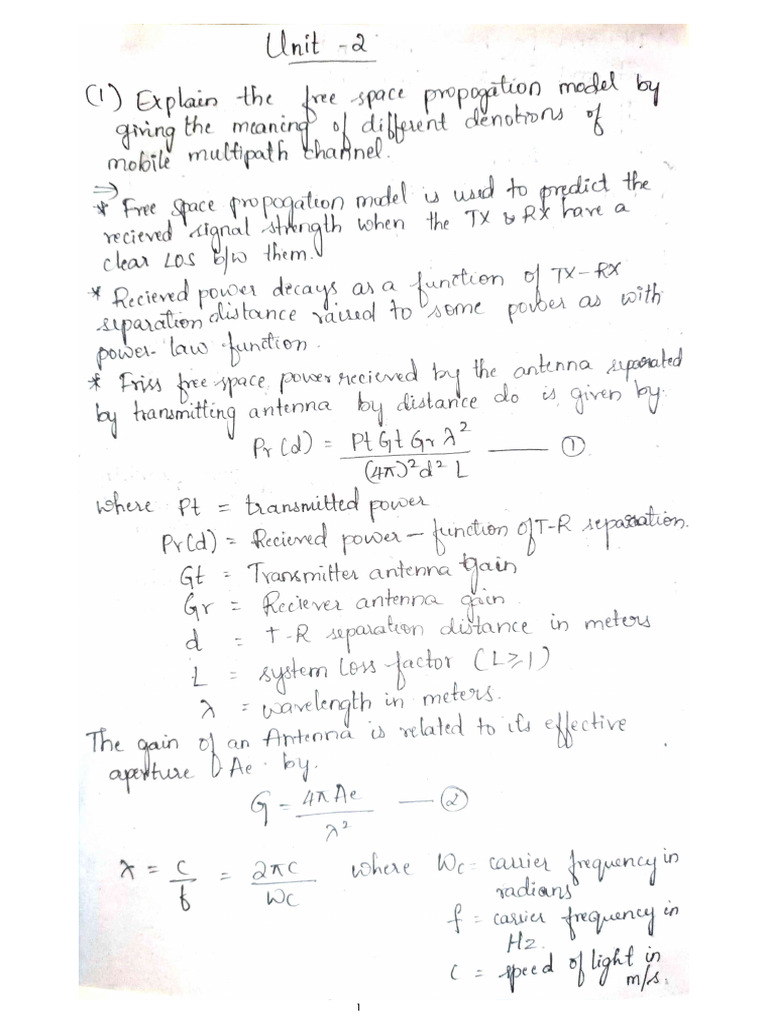 Unit - 2
(1) Explain the free space propogation model by
giving the meaning of different denotions of
mobile multipath channel.
⇒
* Free space propogation model is used to predict the
recieved signal strength when the TX & RX have a
clear LOS b/w them.
* Recieved power decays as a function of TX-RX
separation distance raised to some power as with
power-law function.
* Friss free space power recieved by the antenna separated
by transmitting antenna by distance do is given by:
Pr(d) = Pt Gt Gr λ² / (4π)² d² L —— ①
where Pt = transmitted power
Pr(d) = Recieved power - function of T-R separation.
Gt = Transmitter antenna gain
Gr = Reciever antenna gain
d = T-R separation distance in meters
L = system loss factor (L≥1)
λ = wavelength in meters.
The gain of an Antenna is related to its effective
aperture Ae. by.
G = 4πAe / λ² —— ②
λ = c / f = 2πc / Wc where Wc = carrier frequency in
radians
f = carrier frequency in
Hz.
c = speed of light in
m/s.
1